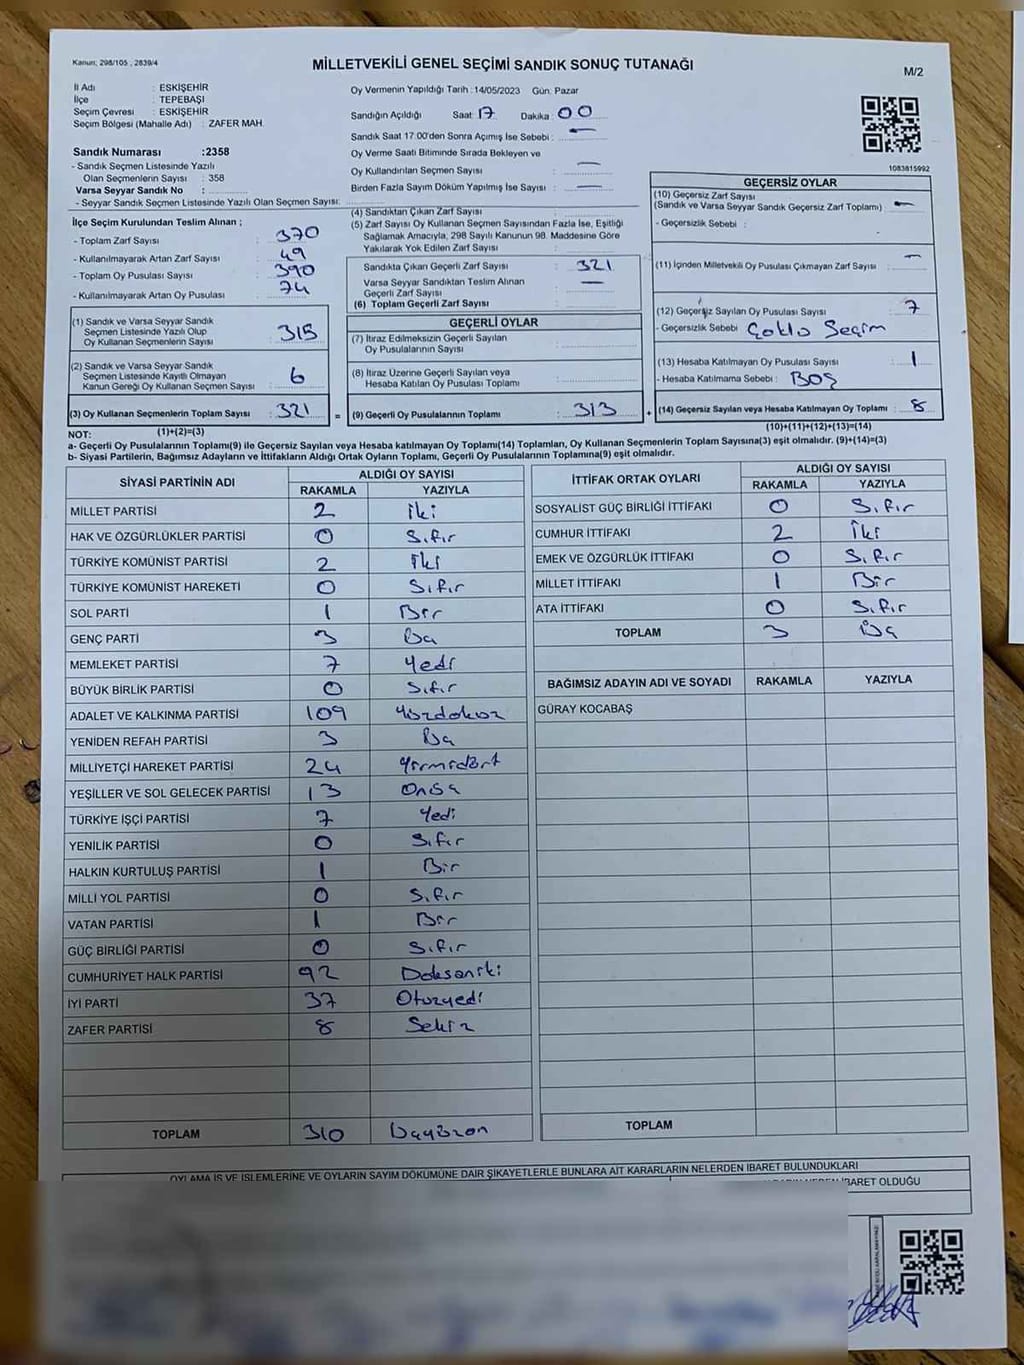 Kanun: 298/105 , 2839/4
MİLLETVEKİLİ GENEL SEÇİMİ SANDIK SONUÇ TUTANAĞI
M/2
İl Adı : ESKİŞEHİR
İlçe : TEPEBAŞI
Seçim Çevresi : ESKİŞEHİR
Seçim Bölgesi (Mahalle Adı) : ZAFER MAH.
Sandık Numarası :2358
- Sandık Seçmen Listesinde Yazılı
Olan Seçmenlerin Sayısı : 358
Varsa Seyyar Sandık No :
- Seyyar Sandık Seçmen Listesinde Yazılı Olan Seçmen Sayısı:
Oy Vermenin Yapıldığı Tarih :14/05/2023 Gün: Pazar
Sandığın Açıldığı Saat: 17 Dakika: 00
Sandık Saat 17:00'den Sonra Açılmış İse Sebebi : —
Oy Verme Saati Bitiminde Sırada Bekleyen ve
Oy Kullandırılan Seçmen Sayısı : —
Birden Fazla Sayım Döküm Yapılmış İse Sayısı : —
1083815992
İlçe Seçim Kurulundan Teslim Alınan ;
- Toplam Zarf Sayısı : 370
- Kullanılmayarak Artan Zarf Sayısı : 49
- Toplam Oy Pusulası Sayısı : 390
- Kullanılmayarak Artan Oy Pusulası : 74
(1) Sandık ve Varsa Seyyar Sandık
Seçmen Listesinde Yazılı Olup
Oy Kullanan Seçmenlerin Sayısı : 315
(2) Sandık ve Varsa Seyyar Sandık
Seçmen Listesinde Kayıtlı Olmayan
Kanun Gereği Oy Kullanan Seçmen Sayısı : 6
(3) Oy Kullanan Seçmenlerin Toplam Sayısı : 321
(1)+(2)=(3)
(4) Sandıktan Çıkan Zarf Sayısı :
(5) Zarf Sayısı Oy Kullanan Seçmen Sayısından Fazla İse, Eşitliği
Sağlamak Amacıyla, 298 Sayılı Kanunun 98. Maddesine Göre
Yakılarak Yok Edilen Zarf Sayısı :
Sandıkta Çıkan Geçerli Zarf Sayısı : 321
Varsa Seyyar Sandıktan Teslim Alınan
Geçerli Zarf Sayısı : —
(6) Toplam Geçerli Zarf Sayısı :
GEÇERLİ OYLAR
(7) İtiraz Edilmeksizin Geçerli Sayılan
Oy Pusulalarının Sayısı :
(8) İtiraz Üzerine Geçerli Sayılan veya
Hesaba Katılan Oy Pusulası Toplamı :
= (9) Geçerli Oy Pusulalarının Toplamı : 313
GEÇERSİZ OYLAR
(10) Geçersiz Zarf Sayısı
(Sandık ve Varsa Seyyar Sandık Geçersiz Zarf Toplamı) : —
- Geçersizlik Sebebi :
(11) İçinden Milletvekili Oy Pusulası Çıkmayan Zarf Sayısı : —
(12) Geçersiz Sayılan Oy Pusulası Sayısı : 7
- Geçersizlik Sebebi : Çoklu Seçim
(13) Hesaba Katılmayan Oy Pusulası Sayısı : 1
- Hesaba Katılmama Sebebi : BOŞ
+ (14) Geçersiz Sayılan veya Hesaba Katılmayan Oy Toplamı : 8
(10)+(11)+(12)+(13)=(14)
NOT:
a- Geçerli Oy Pusulalarının Toplamı(9) ile Geçersiz Sayılan veya Hesaba katılmayan Oy Toplamı(14) Toplamları, Oy Kullanan Seçmenlerin Toplam Sayısına(3) eşit olmalıdır. (9)+(14)=(3)
b- Siyasi Partilerin, Bağımsız Adayların ve İttifakların Aldığı Ortak Oyların Toplamı, Geçerli Oy Pusulalarının Toplamına(9) eşit olmalıdır.
SİYASİ PARTİNİN ADI
ALDIĞI OY SAYISI
RAKAMLA YAZIYLA
MİLLET PARTİSİ 2 iki
HAK VE ÖZGÜRLÜKLER PARTİSİ 0 Sıfır
TÜRKİYE KOMÜNİST PARTİSİ 2 İki
TÜRKİYE KOMÜNİST HAREKETİ 0 Sıfır
SOL PARTİ 1 Bir
GENÇ PARTİ 3 Üç
MEMLEKET PARTİSİ 7 Yedi
BÜYÜK BİRLİK PARTİSİ 0 Sıfır
ADALET VE KALKINMA PARTİSİ 109 Yüzdokuz
YENİDEN REFAH PARTİSİ 3 Üç
MİLLİYETÇİ HAREKET PARTİSİ 24 Yirmidört
YEŞİLLER VE SOL GELECEK PARTİSİ 13 Onüç
TÜRKİYE İŞÇİ PARTİSİ 7 Yedi
YENİLİK PARTİSİ 0 Sıfır
HALKIN KURTULUŞ PARTİSİ 1 Bir
MİLLİ YOL PARTİSİ 0 Sıfır
VATAN PARTİSİ 1 Bir
GÜÇ BİRLİĞİ PARTİSİ 0 Sıfır
CUMHURİYET HALK PARTİSİ 92 Doksaniki
İYİ PARTİ 37 Otuzyedi
ZAFER PARTİSİ 8 Sekiz
TOPLAM 310 Üçyüzon
İTTİFAK ORTAK OYLARI
ALDIĞI OY SAYISI
RAKAMLA YAZIYLA
SOSYALİST GÜÇ BİRLİĞİ İTTİFAKI 0 Sıfır
CUMHUR İTTİFAKI 2 İki
EMEK VE ÖZGÜRLÜK İTTİFAKI 0 Sıfır
MİLLET İTTİFAKI 1 Bir
ATA İTTİFAKI 0 Sıfır
TOPLAM 3 Üç
BAĞIMSIZ ADAYIN ADI VE SOYADI RAKAMLA YAZIYLA
GÜRAY KOCABAŞ
TOPLAM
OYLAMA İŞ VE İŞLEMLERİNE VE OYLARIN SAYIM DÖKÜMÜNE DAİR ŞİKAYETLERLE BUNLARA AİT KARARLARIN NELERDEN İBARET BULUNDUKLARI
NEDEN İBARET OLDUĞU